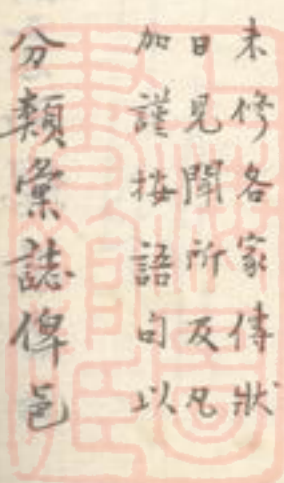 未修各家傳狀
日見聞所及凡
加謹按語句以
分類彙誌俾邑